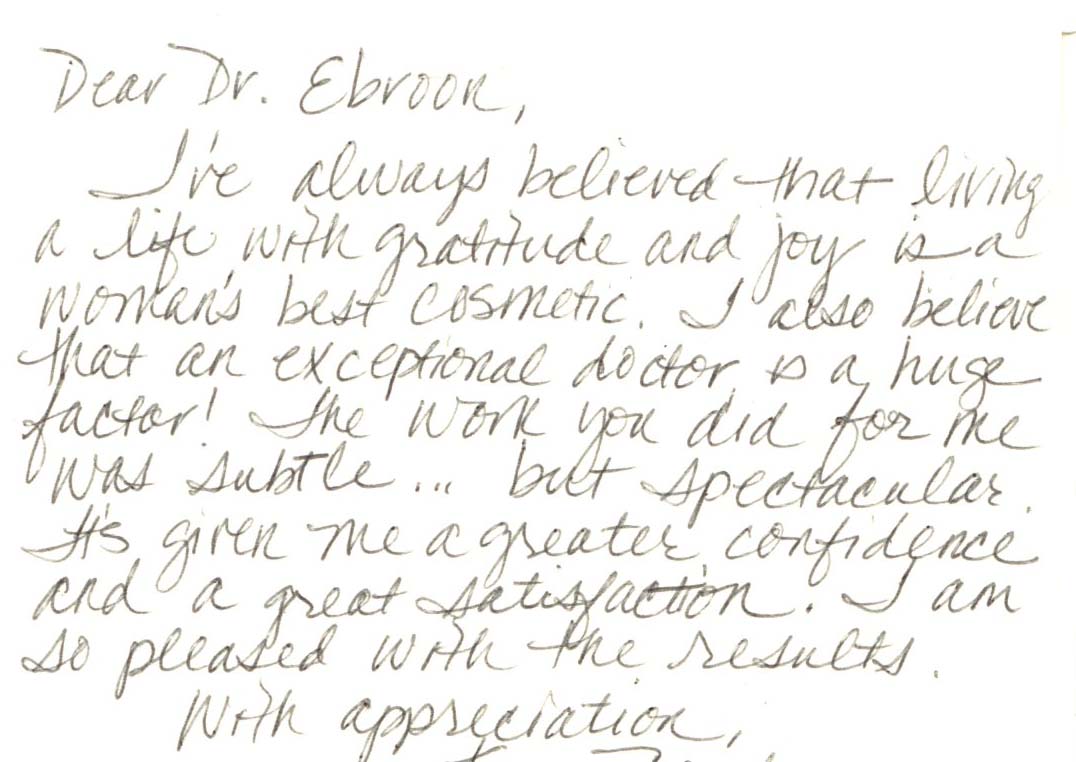 Dear Dr. Ebroon,
I've always believed that living
a life with gratitude and joy is a
woman's best cosmetic. I also believe
that an exceptional doctor is a huge
factor! The work you did for me
was subtle... but spectacular.
It's given me a greater confidence
and a great satisfaction. I am
so pleased with the results.
With appreciation,